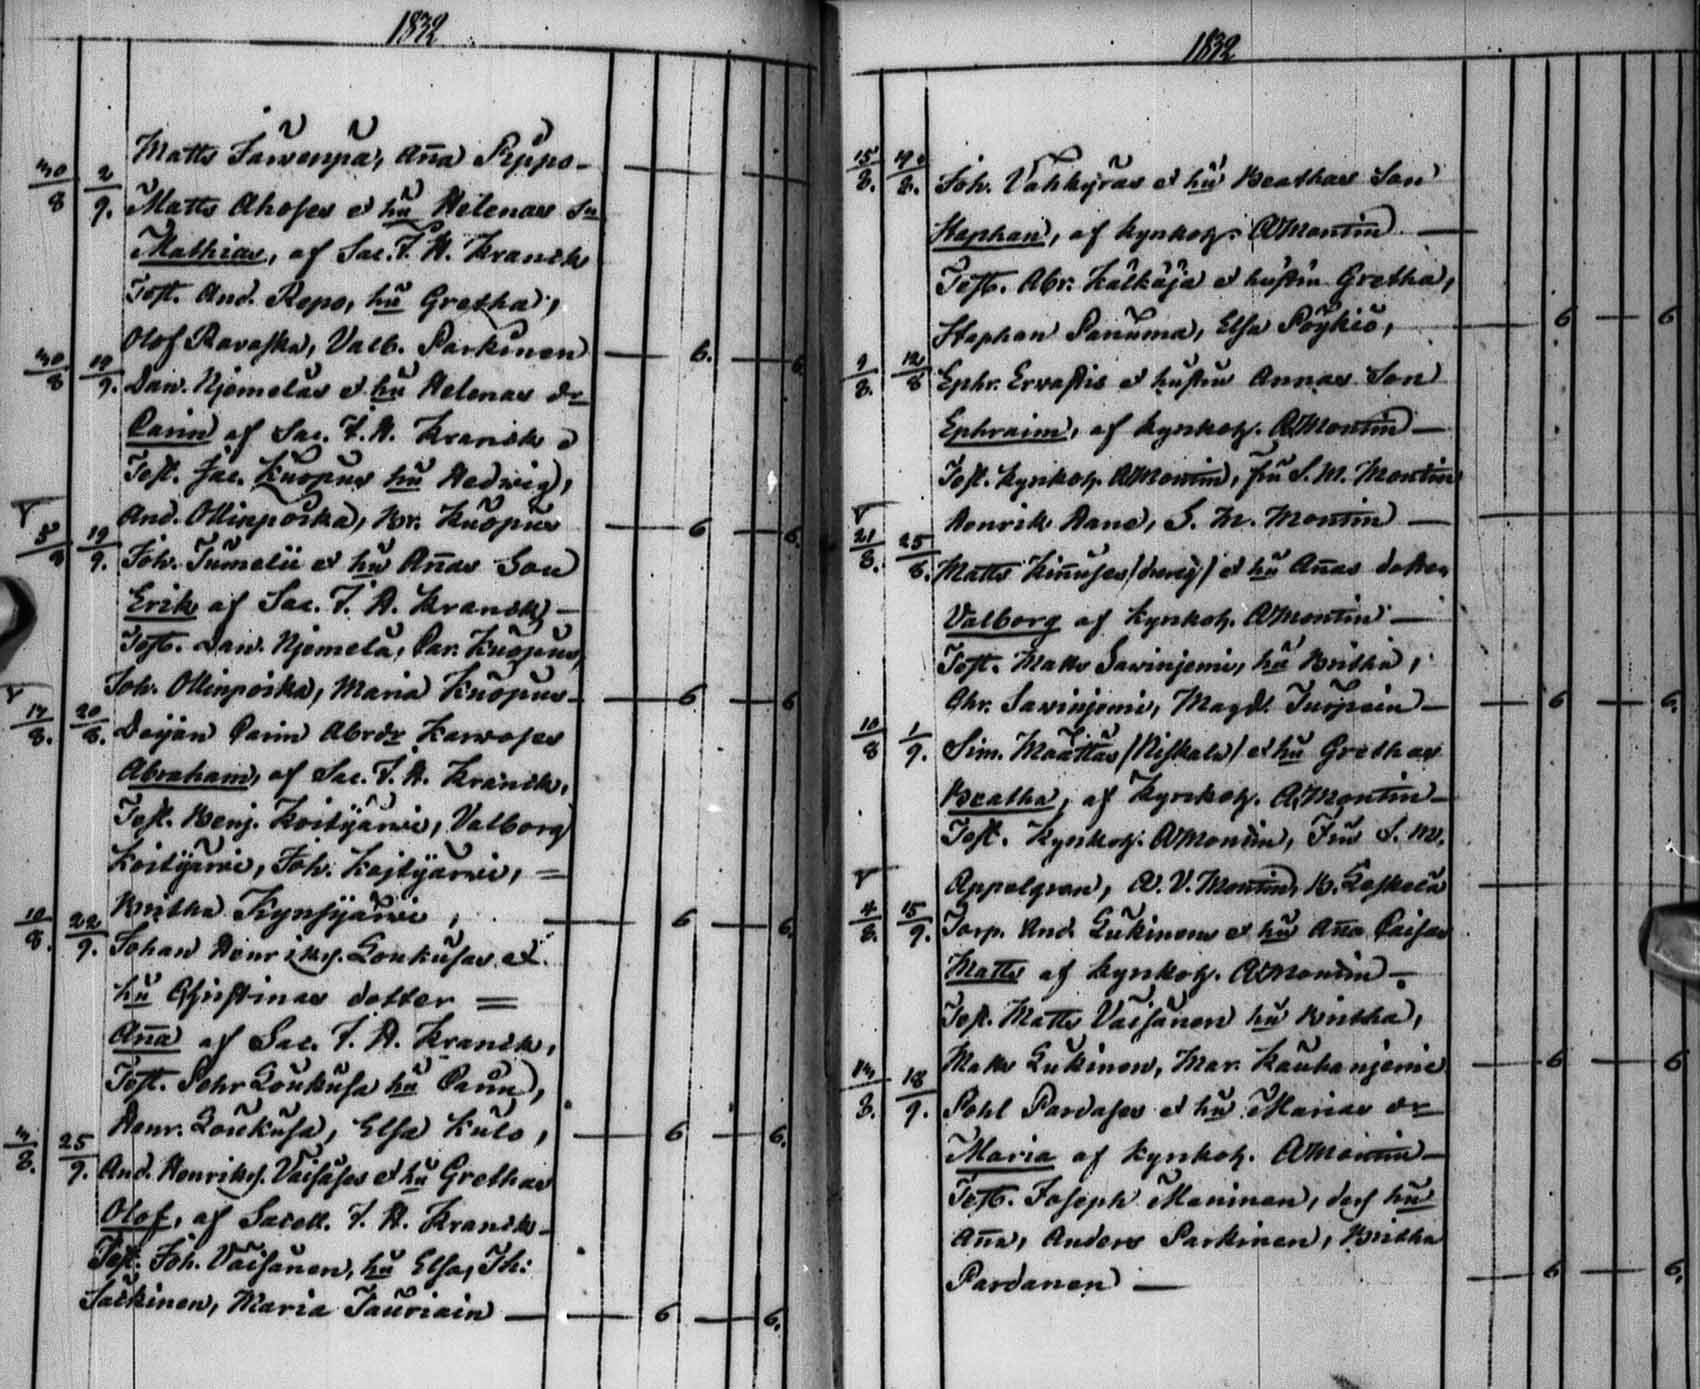 1832
Matts Jawenpä, Aña Pyppö
30/8 2/9 Matts Ahoses et hu Helenas Sn
Mathias, af Sac. J. H. Kranck
Test. And. Repo, hu Gretha,
Olof Ravaska, Valb. Parkinen — 6. — 6
30/8 19/9 Dan. Njemeläs et hu Helenas dr
Carin af Sac. J. H. Kranck
Test. Jac. Kuopus hu Hedwig,
And. Ollinpoika, Br. Kuopus — 6 — 6.
5/8 19/9 Joh. Tumelii et hu Añas Son
Erik af Sac. J. H. Kranck —
Test. Dan. Njemelä, Car. Kuopus,
Joh. Ollinpoika, Maria Kuopus — 6 — 6
17/8. 20/8. Dejan Carin Abrdr Karvoses
Abraham, af Sac. J. H. Kranck,
Test. Benj. Koitijärwi, Valborg
Koitijärwi, Joh. Koitijärwi, =
Britha Kynsijärwi, — 6 — 6.
10/8. 22/9. Johan Henriks. Loukusas et
hu Christinas dotter =
Aña af Sac. J. H. Kranck,
Test. Pehr Loukusa hu Carin,
Henr. Loukusa, Elsa Kulo, — 6 — 6.
3/8. 25/9. And. Henriks. Vaisäses et hu Grethas
Olof, af Sacell. J. H. Kranck —
Test. Joh. Väisänen, hu Elsa, Joh:
Särkinen, Maria Tauriain — 6 — 6.
1832
15/8. 19/8. Joh. Vähkyräs et hu Beathas Son
Stephan, af kyrkoh. A Montin —
Test. Abr. Kälkäjä et hustru Gretha,
Stephan Panuma, Elsa Pöykiö, — 6 — 6
9/8. 12/8 Ephr. Ervastis et hustru Annas Son
Ephraim, af kyrkoh. A Montin —
Test. kyrkoh. A Montin, fru S. M. Montin
Henrik Aane, S. M. Montin —
21/8. 25/8. Matts Kinuses (dräng) et hu Añas dotter
Valborg af kyrkoh. A Montin —
Test. Matts Sarinjemi, hu Britha,
Chr. Sarinjemi, Magd. Turpein — 6 — 6.
10/8 1/9. Sim. Määttäs (Niskala) et hu Grethas
Beatha, af kyrkoh. A Montin —
Test. kyrkoh. A Montin, Fru S. M.
Appelgren, A. V. Montin, B. Leskelä
4/8. 15/9. Torp. And. Lukinens et hu Aña Caisas
Matts af kyrkoh. A Montin —
Test. Matts Väisänen hu Britha,
Matts Lukinen, Mar. Kauhanjemi — 6 — 6
14/8. 18/9. Pehl Pardases et hu Marias dr
Maria af kyrkoh. A Montin —
Test. Joseph Moninen, des hu
Aña, Anders Parkinen, Britha
Pardanen — 6 — 6.